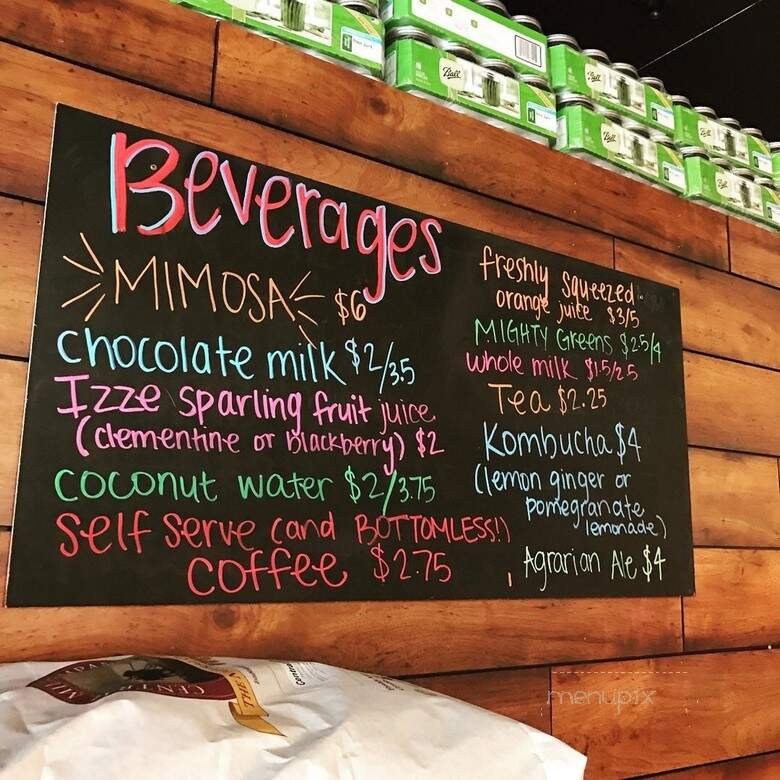 Beverages
MIMOSA $6
chocolate milk $2/3.5
Izze sparling fruit juice
(clementine or blackberry) $2
coconut water $2/3.75
self serve (and BOTTOMLESS!)
coffee $2.75
freshly squeezed
orange juice $3/5
MIGHTY Greens $2.5/4
whole milk $1.5/2.5
Tea $2.25
Kombucha $4
(lemon ginger or
pomegranate
lemonade)
Agrarian Ale $4
Ball
Ball
Ball
Ball
Ball
Ball
menupix